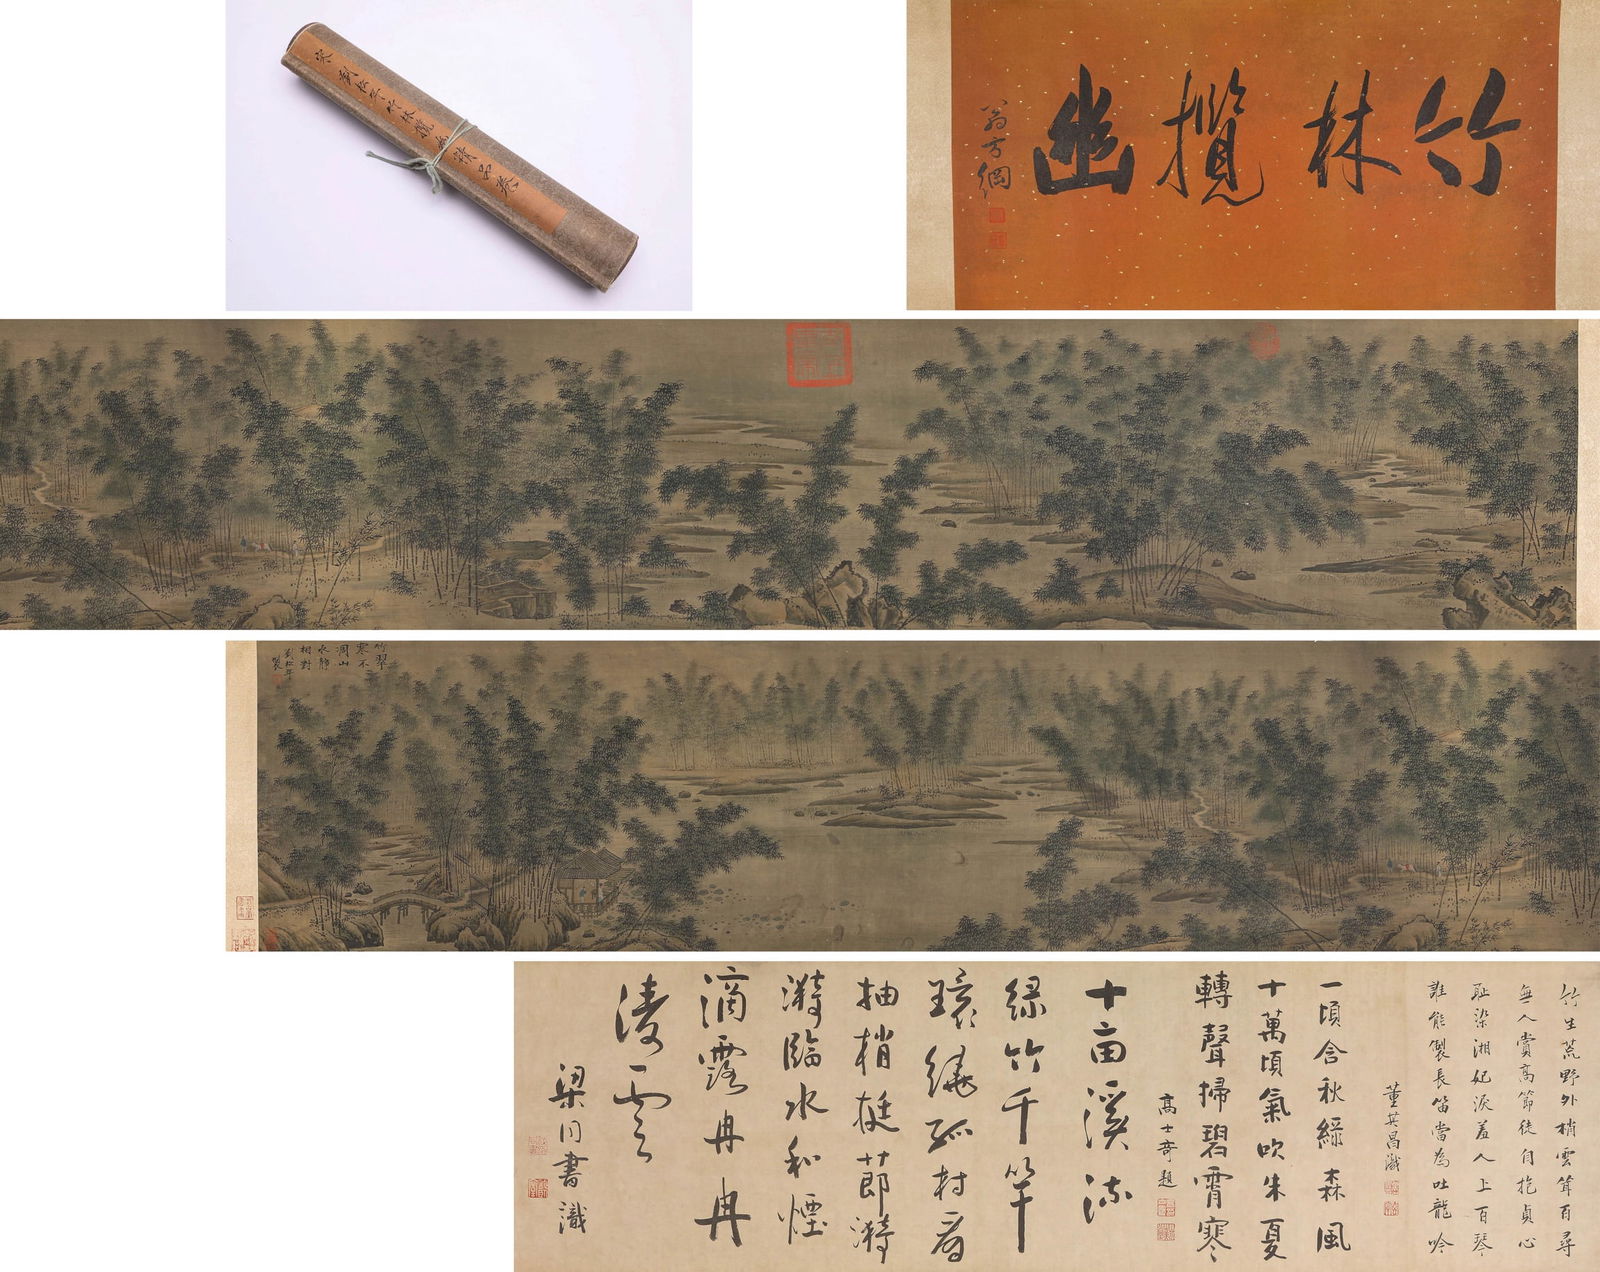 宋劉松年竹林攬幽精品卷
竹林攬幽
翁方綱
竹翠
寒不
凋山
水靜
相對
劉松年
製
竹生荒野外梢雲聳百尋
無人賞高節徒自抱貞心
耻染湘妃淚羞入上宮琴
誰能製長笛當為吐龍吟
董其昌識
一頃含秋綠森風
十萬頃氣吹朱夏
轉聲掃碧霄寒
高士奇題
十亩溪流
綠竹千竿
環繞孤村看
抽梢挺莭漪
漪臨水和煙
滴露冉冉
淩雲
梁同書識